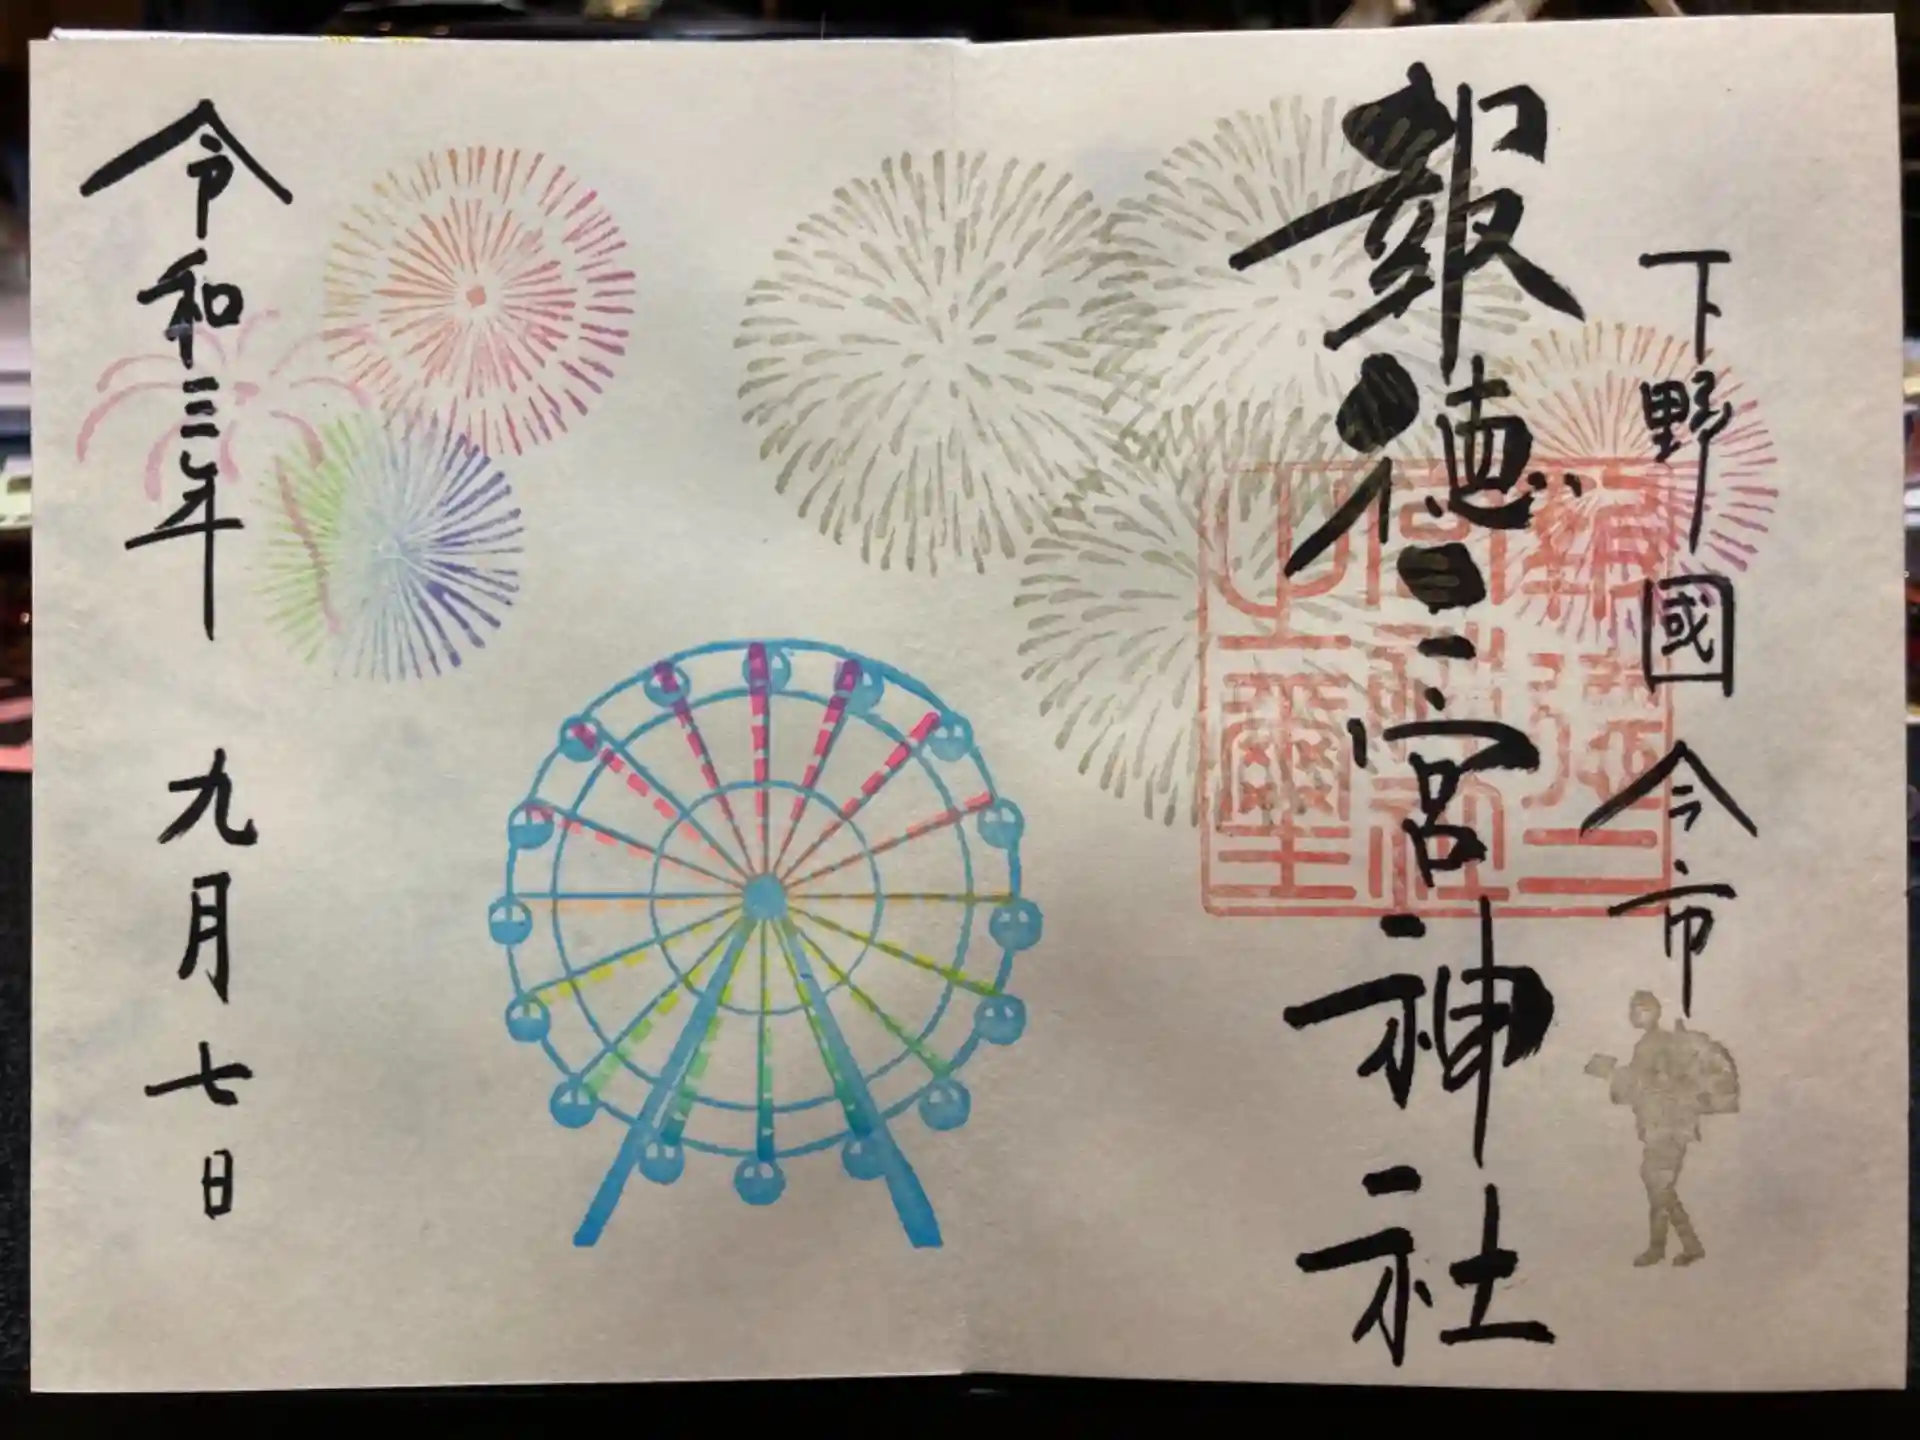 下野國今市
報徳二宮神社
令和三年 九月七日
報徳二
宮神社
之璽